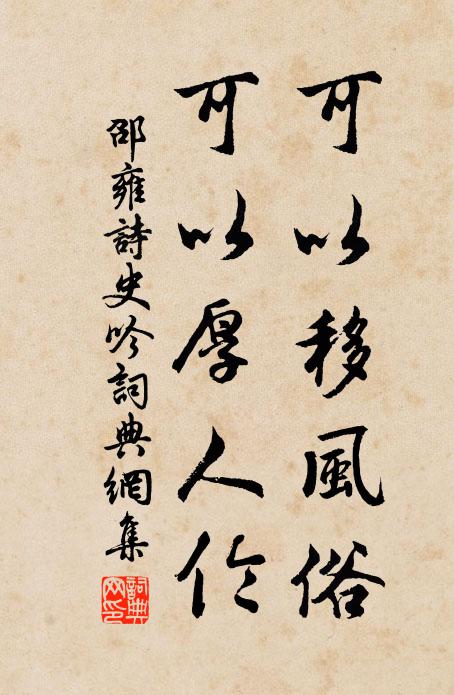 可以移風俗
可以厚人伦
邵雍詩史吟詞典網集
詞典
网印